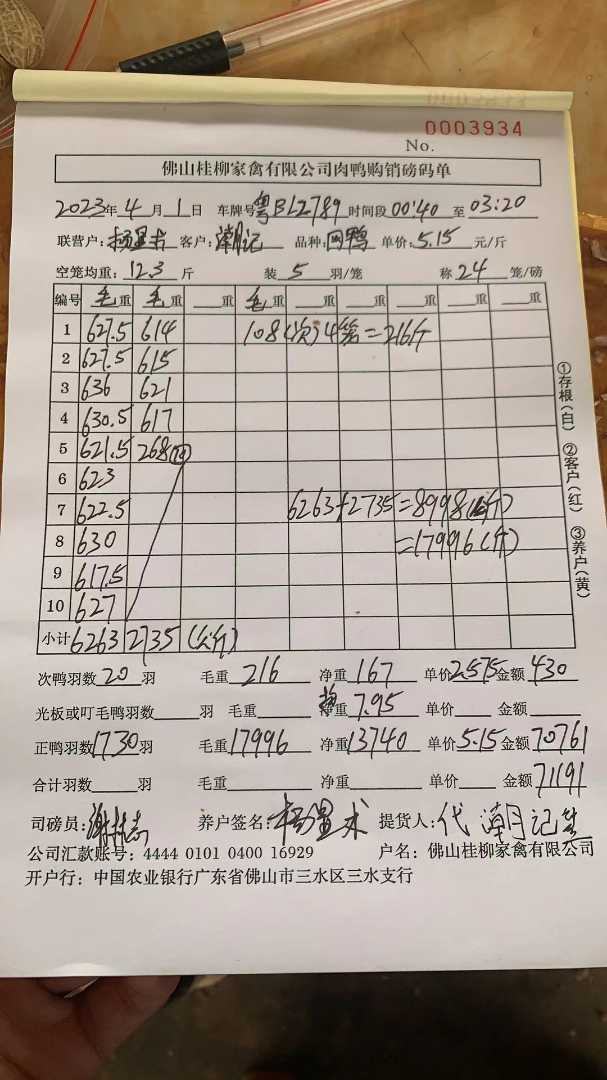 0003934
No.
佛山桂柳家禽有限公司肉鸭购销磅码单
2023年4月1日 车牌号粤BL2789 时间段00:40至03:20
联营户: 杨量术 客户: 潮记 品种: 肉鸭 单价: 5.15 元/斤
空笼均重: 12.3 斤 装 5 羽/笼 称 24 笼/磅
编号 毛重 毛重 重 毛重 重 重 重 重 重
1 627.5 614 108(次)4笼=216斤
2 627.5 615
3 636 621
4 630.5 617
5 621.5 268
6 623
7 622.5 6263+2735=8998(公斤)
8 630 =17996(斤)
9 617.5
10 627
小计 6263 2735 (公斤)
次鸭羽数 20 羽 毛重 216 净重 167 单价 2.575 金额 430
光板或叮毛鸭羽数 羽 毛重 重 7.95 单价 金额
正鸭羽数 1730 羽 毛重 17996 净重 13740 单价 5.15 金额 70761
合计羽数 羽 毛重 净重 单价 金额 71191
司磅员: 养户签名: 杨量术 提货人: 代 潮记
公司汇款账号: 4444 0101 0400 16929 户名: 佛山桂柳家禽有限公司
开户行: 中国农业银行广东省佛山市三水区三水支行
①存根(白) ②客户(红) ③养户(黄)